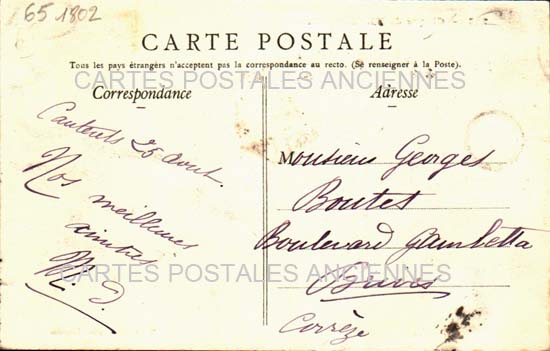 65 1802
CARTE POSTALE
Tous les pays étrangers n'acceptent pas la correspondance au recto. (Se renseigner à la Poste).
CARTES POSTALES ANCIENNES
Correspondance
Adresse
Cauterets 25 août.
Nos meilleures
amitiés
M. D.
Monsieur Georges
Boutet
Boulevard Gambetta
Brives
Corrèze
CARTES POSTALES ANCIENNES